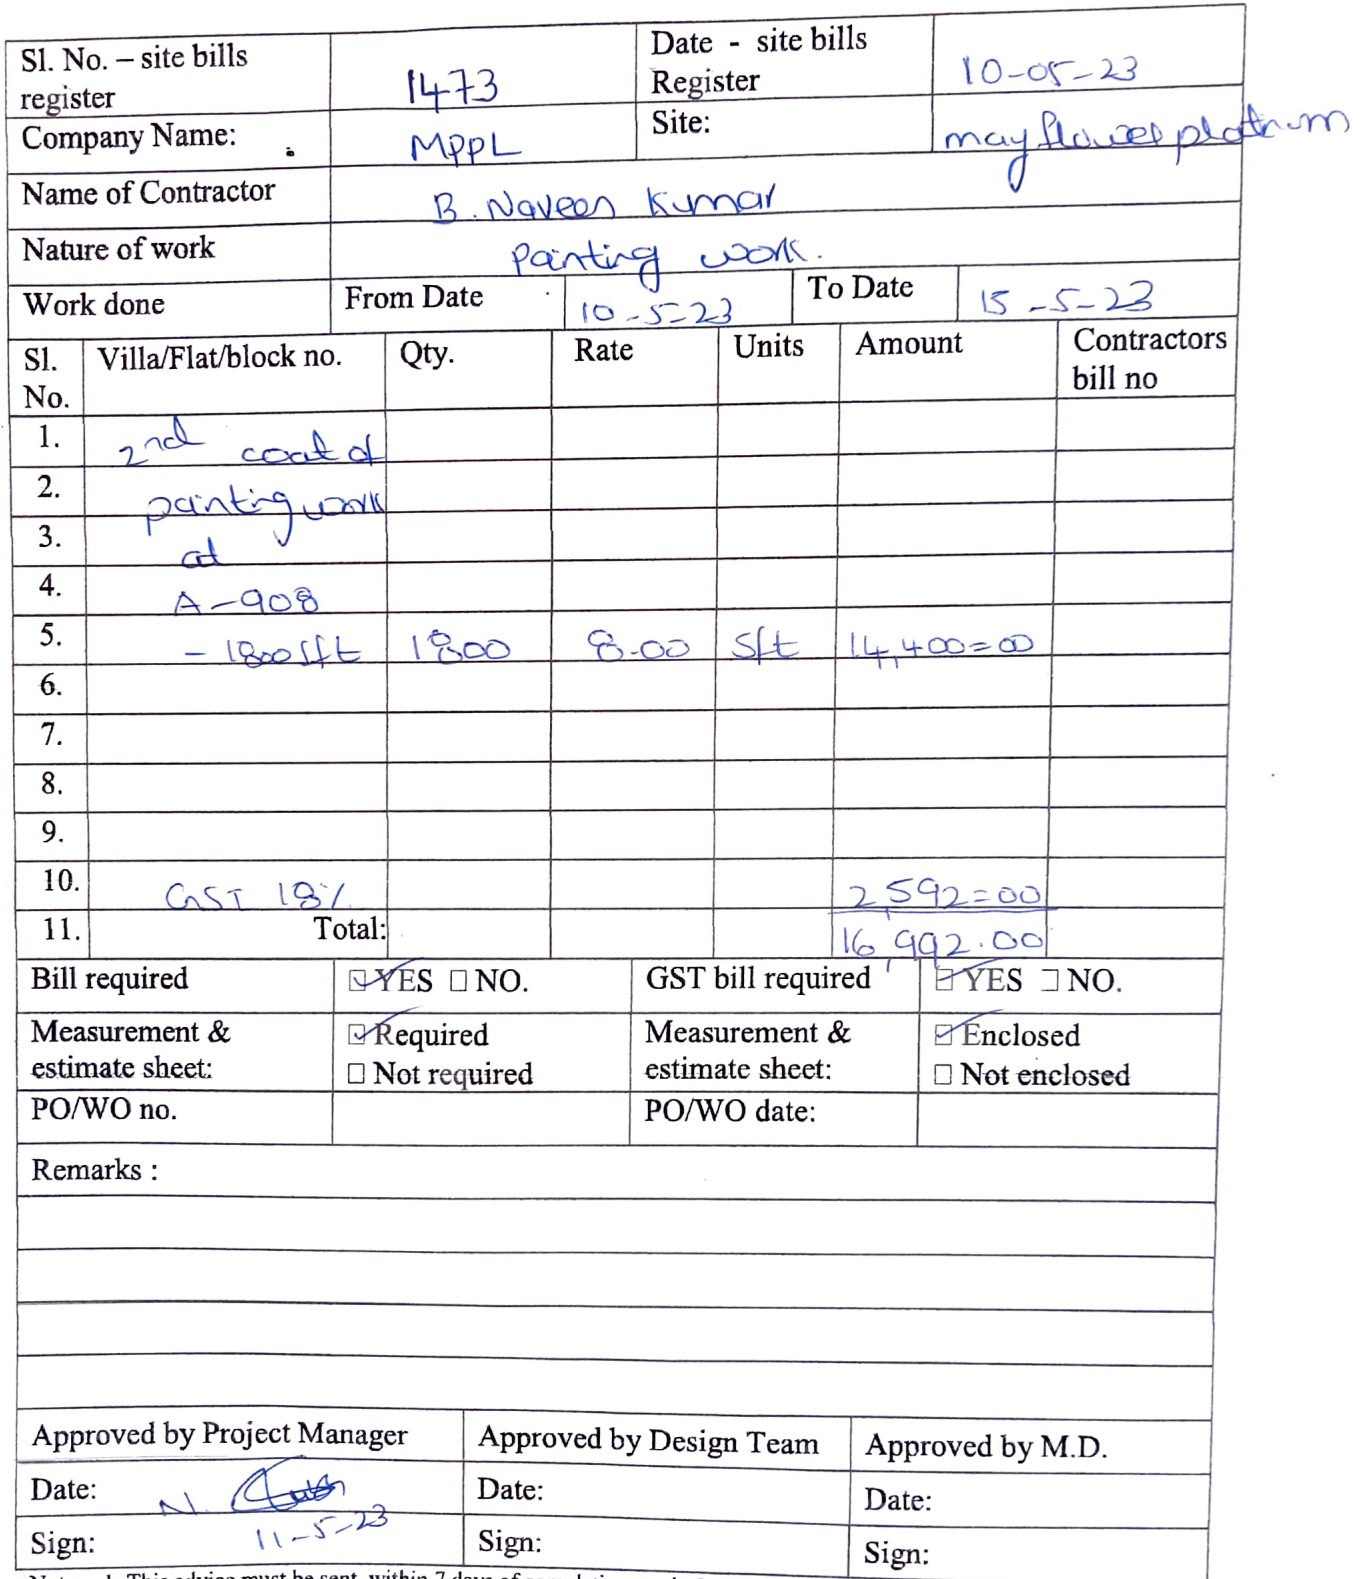 Sl. No. – site bills register 1473 Date - site bills Register 10-05-23
Company Name: MPPL Site: mayflower platinum
Name of Contractor B. Naveen Kumar
Nature of work Painting work.
Work done From Date 10-5-23 To Date 15-5-23
Sl. No. Villa/Flat/block no. Qty. Rate Units Amount Contractors bill no
1. 2nd coat of
2. painting work
3. at
4. A-908
5. - 1800 sft 1800 8.00 Sft 14,400=00
6.
7.
8.
9.
10. GST 18% 2,592=00
11. Total: 16,992.00
Bill required ☑ YES □ NO. GST bill required ☑ YES □ NO.
Measurement & estimate sheet: ☑ Required □ Not required Measurement & estimate sheet: ☑ Enclosed □ Not enclosed
PO/WO no. PO/WO date:
Remarks :
Approved by Project Manager Approved by Design Team Approved by M.D.
Date: N. Date: Date:
Sign: 11-5-23 Sign: Sign: